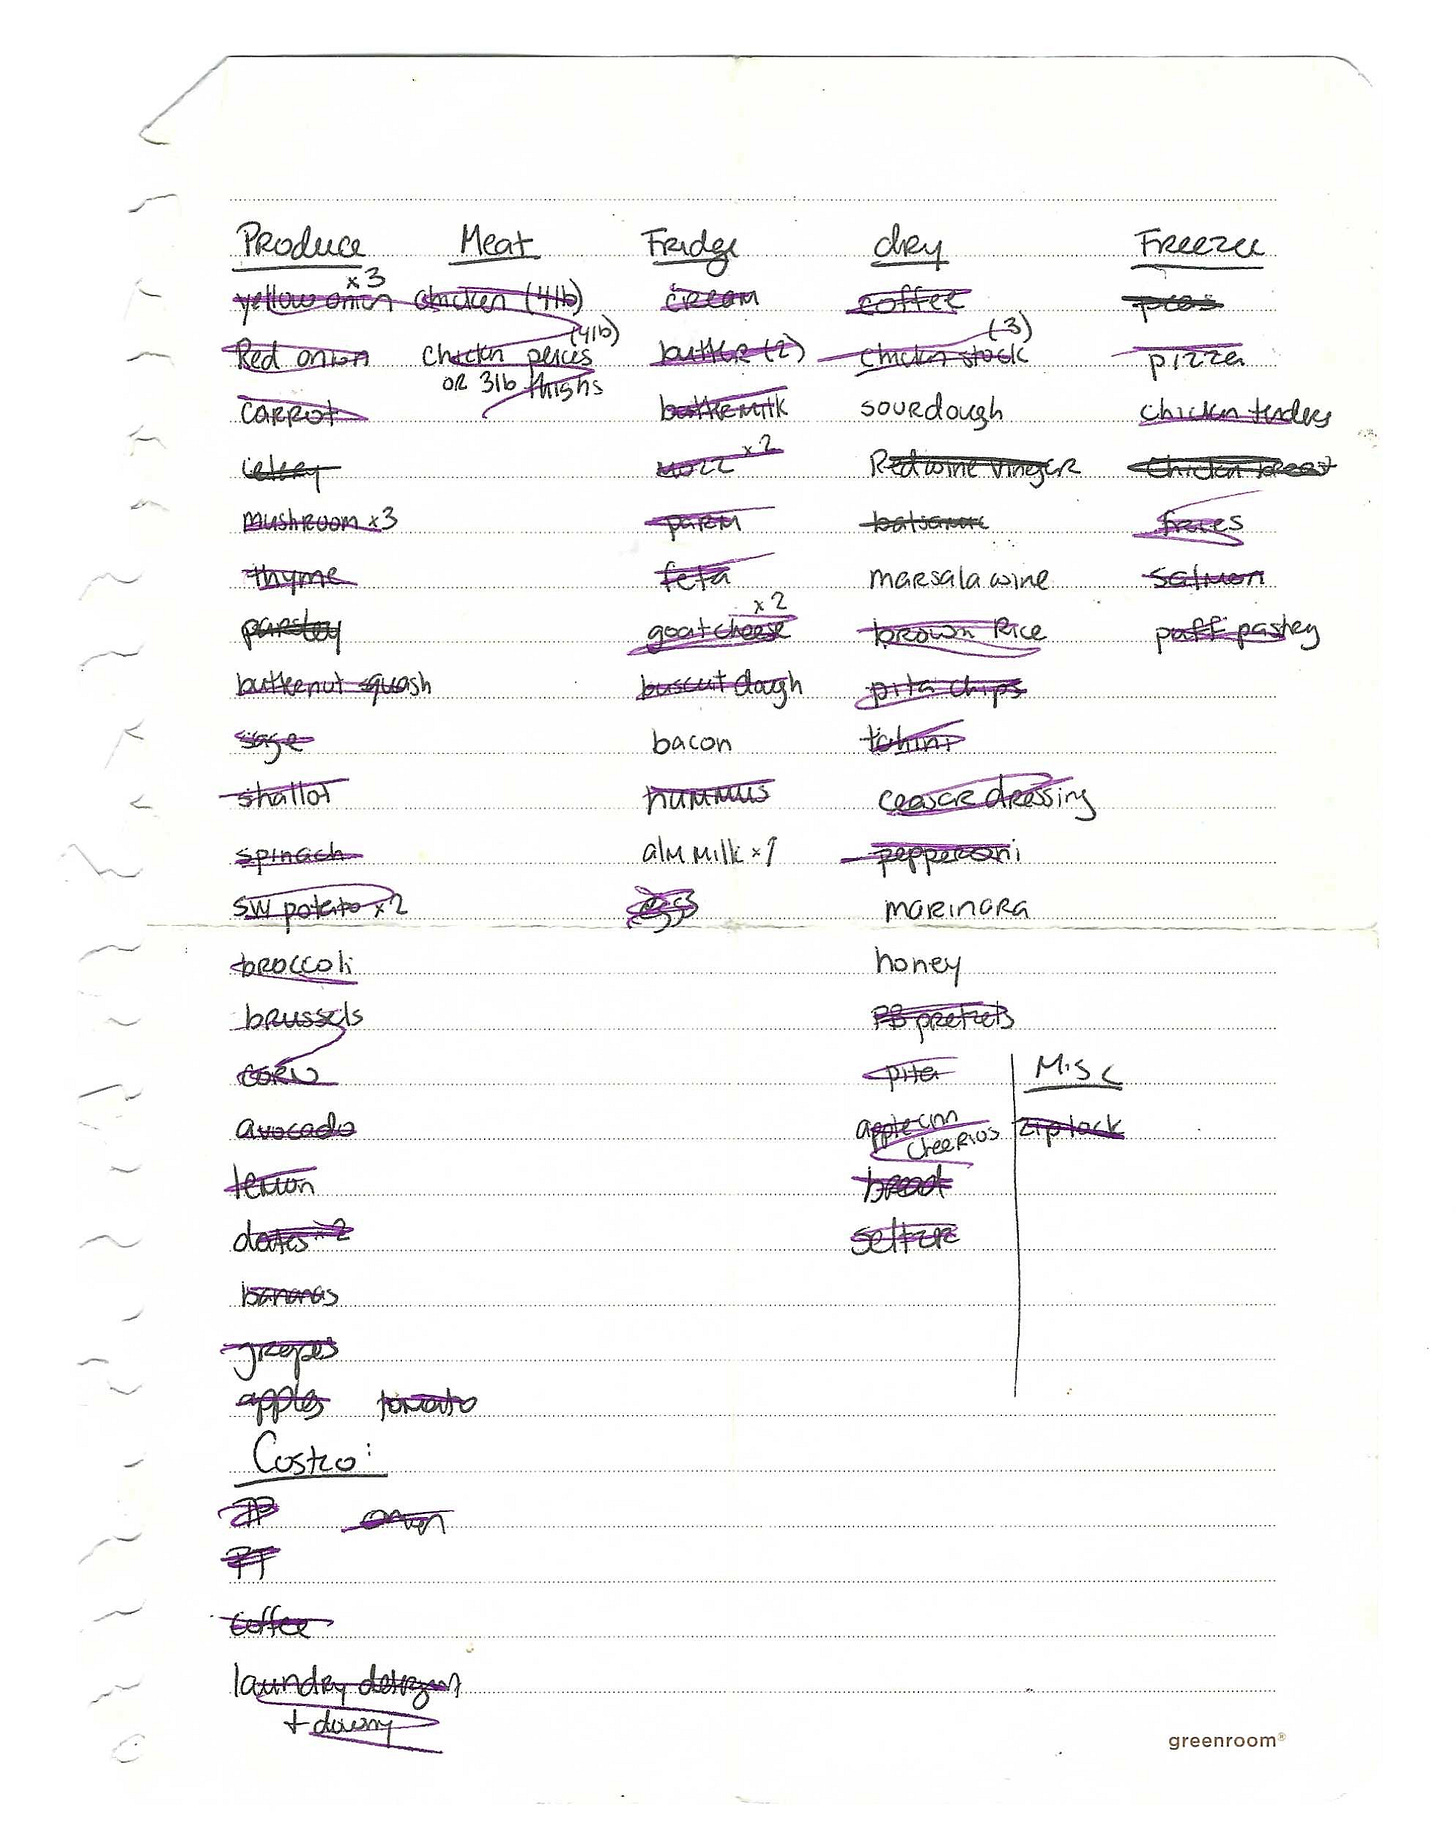 Produce Meat Fridge dry Freezer
yellow onion x3 chicken (4lb) cream coffee peas
Red onion chickn peices (4lb) butter (2) chickn stock (3) pizza
OR 3lb thighs
carrot buttermilk sourdough chickn tenders
celery mozz x2 Red wine vinger chickn breast
mushroom x3 parm balsamic fries
thyme feta marsala wine salmon
parsley goat cheese x2 brown Rice puff pastry
butternut squash buscuit dough pita chips
sage bacon tahini
shallot hummus ceaser dressing
spinach alm milk x1 pepperoni
sw potato x2 eggs marinara
broccoli honey
brussels PB pretzels
corn pita Misc
avocado apple cinn ziplock
cheerios
lemon bread
dates x2 seltzer
bananas
grapes
apples tomato
Costco:
TP onion
PT
coffee
laundry detergent
+ downy
greenroom®